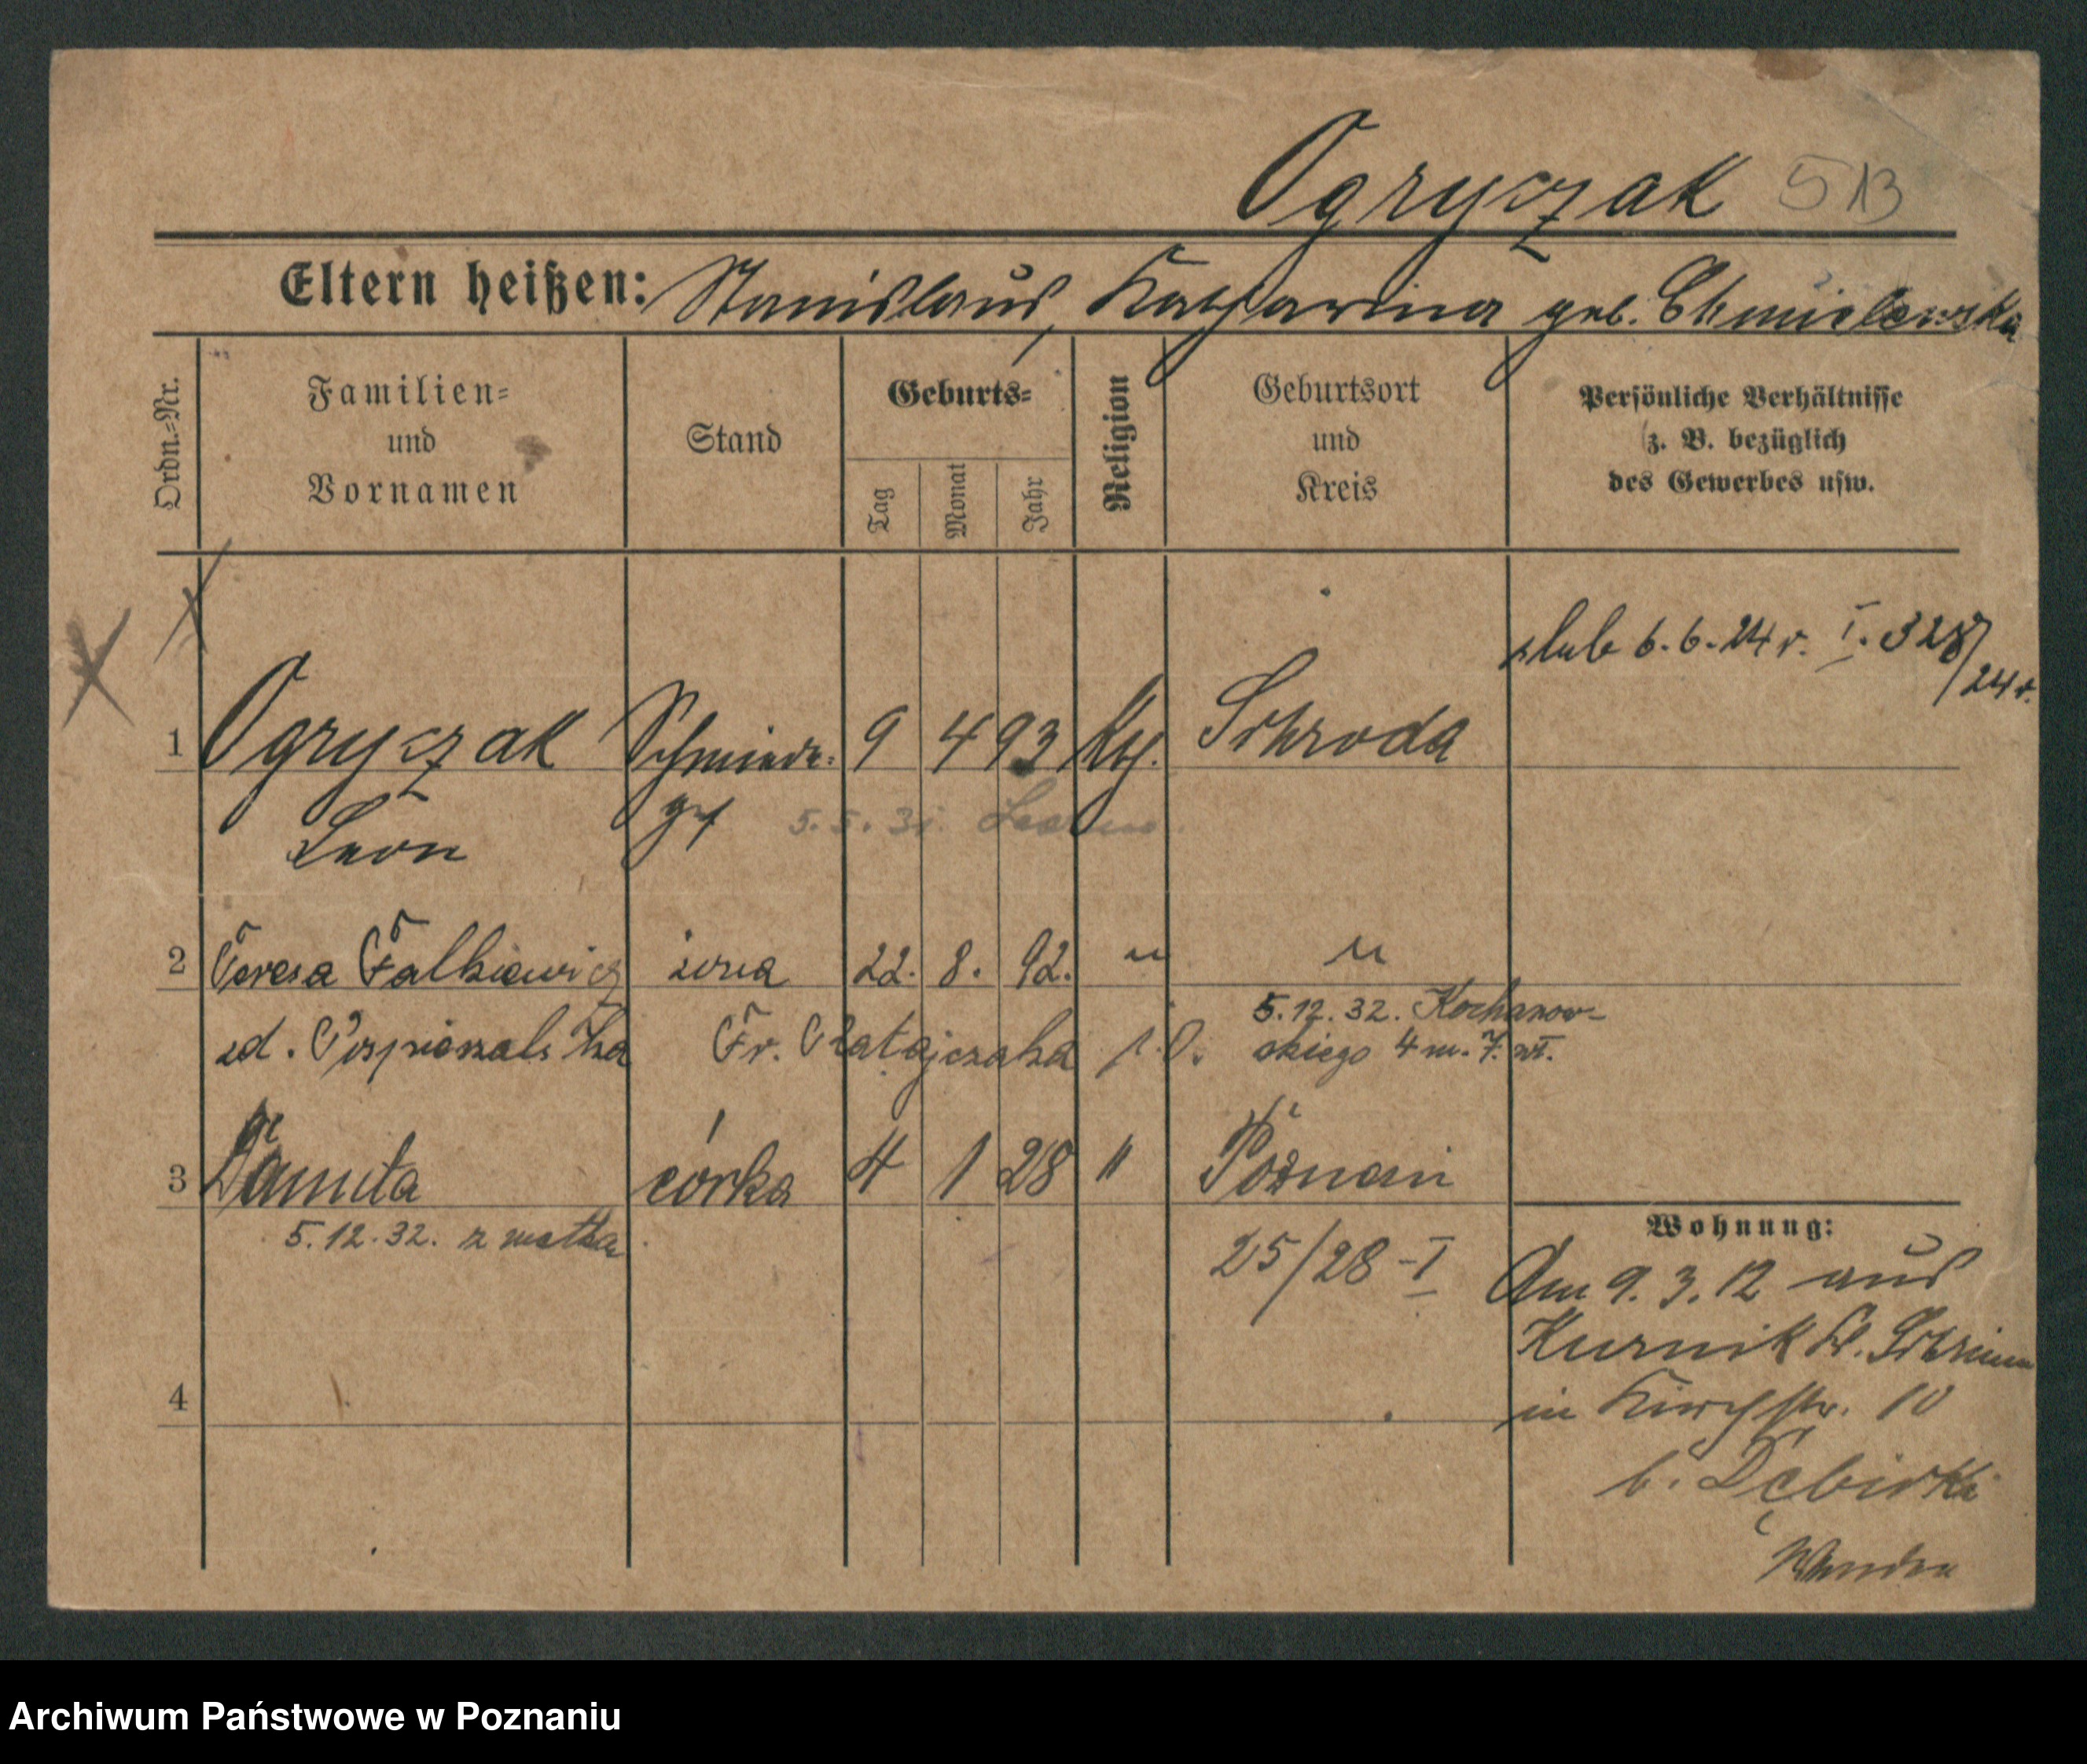 Ogryczak 513
Eltern heißen: Stanislaus, Katharina geb. Chmielewska
Ordn.-Nr.
Familien-
und
Vornamen
Stand
Geburts-
Tag
Monat
Jahr
Religion
Geburtsort
und
Kreis
Persönliche Verhältnisse
z. B. bezüglich
des Gewerbes usw.
ślub 6.6.24 r. I. 328/24 r.
1 Ogryczak Schmiede- 9 4 93 kth. Schroda
Leon ges. 5.5.31.
2 Teresa Falkiewicz żona 22. 8. 92. " "
zd. Pospieszalska Fr. Ratajczaka 5.12.32. Kochanow-
skiego 4 m. 7.
3 Danuta córka 4 1 28 " Poznań
5.12.32. z matką 25/28-I
4
Wohnung:
Am 9.3.12 aus
Kurnik Kr. Schrimm
in Kirchstr. 10
b.
Archiwum Państwowe w Poznaniu